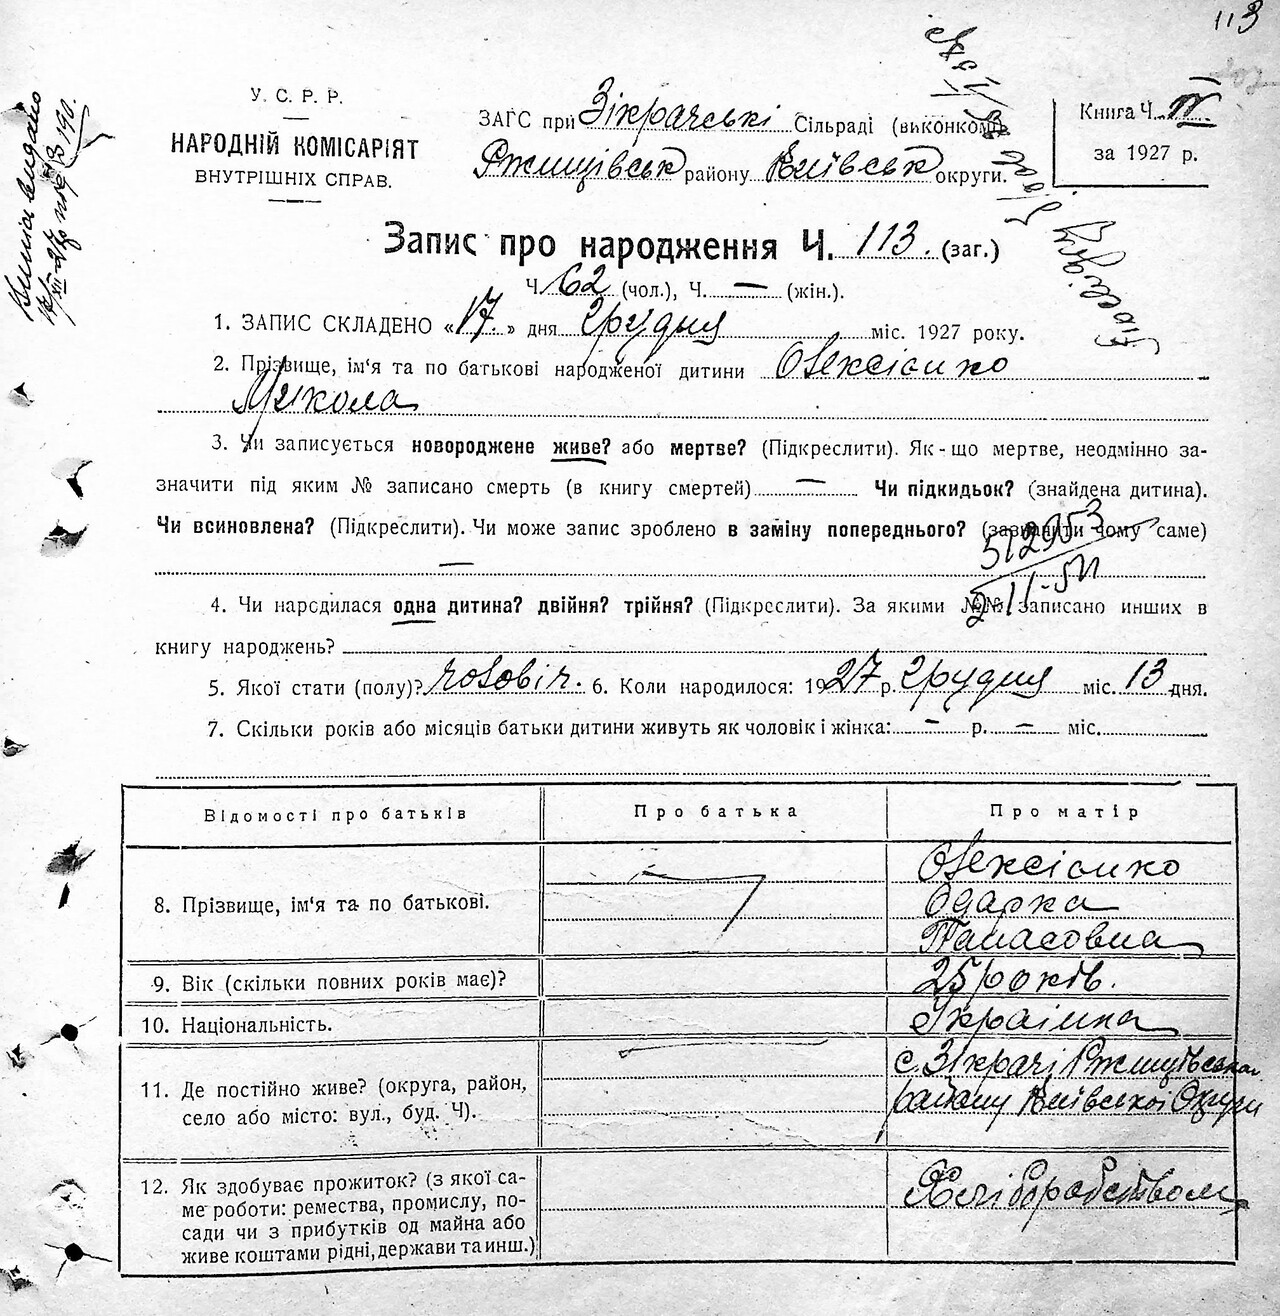 113
У. С. Р. Р.
НАРОДНІЙ КОМІСАРІЯТ
ВНУТРІШНІХ СПРАВ.
ЗАГС при Зікрачські Сільраді (виконкомі)
Ржищівськ району Київськ округи.
Книга Ч. IV
за 1927 р.
Запис про народження Ч. 113. (заг.)
Ч. 62 (чол.), Ч. — (жін.).
1. ЗАПИС СКЛАДЕНО «17.» дня грудня міс. 1927 року.
2. Прізвище, ім'я та по батькові народженої дитини Олексієнко
Микола
3. Чи записується новороджене живе? або мертве? (Підкреслити). Як-що мертве, неодмінно за-
значити під яким № записано смерть (в книгу смертей) — Чи підкидьок? (знайдена дитина).
Чи всиновлена? (Підкреслити). Чи може запис зроблено в заміну попереднього? (зазначити чому саме)
—
512953
4. Чи народилася одна дитина? двійня? трійня? (Підкреслити). За якими №№ записано инших в
книгу народжень?
5. Якої стати (полу)? чоловіч. 6. Коли народилося: 1927 р. грудня міс. 13 дня.
7. Скільки років або місяців батьки дитини живуть як чоловік і жінка: — р. — міс.
Відомості про батьків
Про батька
Про матір
8. Прізвище, ім'я та по батькові.
Олексієнко
Одарка
Панасовна
9. Вік (скільки повних років має)?
25 років.
10. Національність.
Українка
11. Де постійно живе? (округа, район,
село або місто: вул., буд. Ч).
с. Зікрачі Ржищівська
району Київської Округи
12. Як здобуває прожиток? (з якої са-
ме роботи: ремества, промислу, по-
сади чи з прибутків од майна або
живе коштами рідні, держави та инш.)
Хліборобством